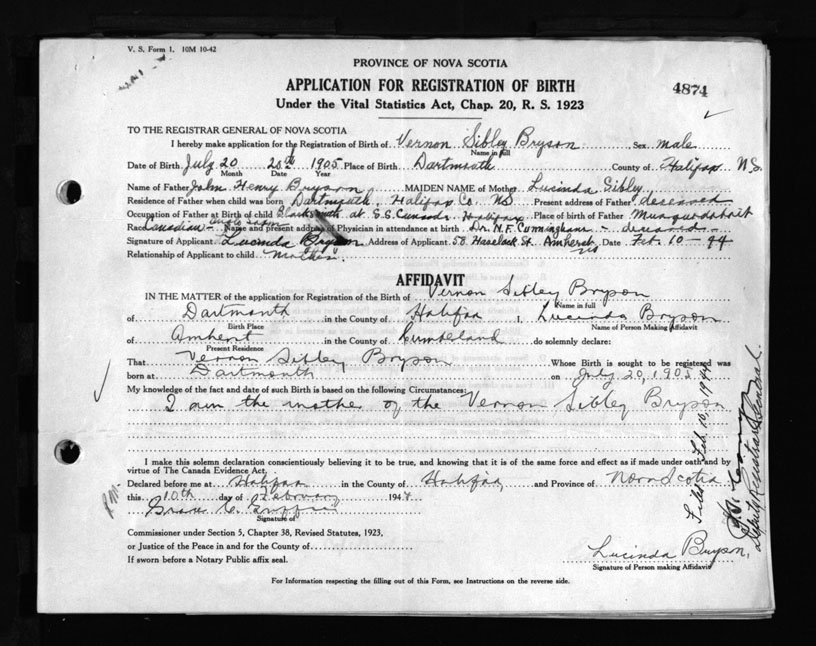 V. S. Form 1. 10M 10-42
PROVINCE OF NOVA SCOTIA
APPLICATION FOR REGISTRATION OF BIRTH
4874
Under the Vital Statistics Act, Chap. 20, R. S. 1923
TO THE REGISTRAR GENERAL OF NOVA SCOTIA
I hereby make application for the Registration of Birth of Vernon Sibley Bryson Sex male
Name in full
Date of Birth July 20 20th 1905 Place of Birth Dartmouth County of Halifax N.S.
Month Day Year
Name of Father John Henry Bryson MAIDEN NAME of Mother Lucinda Sibley
Residence of Father when child was born Dartmouth, Halifax Co. NS Present address of Father deceased
Occupation of Father at Birth of child Blacksmith at S.S. Cunards Halifax Place of birth of Father Musquodoboit
Race Canadian - Anglo Saxon Name and present address of Physician in attendance at birth Dr. N.F. Cunningham - deceased -
Signature of Applicant Lucinda Bryson Address of Applicant 58 Havelock St. Amherst NS Date Feb 10 - 44
Relationship of Applicant to child Mother.
AFFIDAVIT
IN THE MATTER of the application for Registration of the Birth of Vernon Sibley Bryson
Name in full
of Dartmouth in the County of Halifax I, Lucinda Bryson
Birth Place Name of Person Making Affidavit
of Amherst in the County of Cumberland do solemnly declare:
Present Residence
That Vernon Sibley Bryson Whose Birth is sought to be registered was
born at Dartmouth on July 20, 1905
My knowledge of the fact and date of such Birth is based on the following Circumstances:
I am the mother of the Vernon Sibley Bryson
I make this solemn declaration conscientiously believing it to be true, and knowing that it is of the same force and effect as if made under oath and by
virtue of The Canada Evidence Act.
Declared before me at Halifax in the County of Halifax and Province of Nova Scotia
this 10th day of February 1944
Signature of
Commissioner under Section 5, Chapter 38, Revised Statutes, 1923,
or Justice of the Peace in and for the County of
If sworn before a Notary Public affix seal.
Lucinda Bryson,
Signature of Person making Affidavit
For Information respecting the filling out of this Form, see Instructions on the reverse side.
Filed Feb. 10, 1944
Deputy Registrar General.